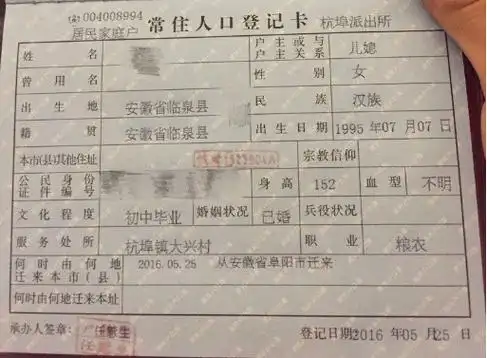 004008994 常住人口登记卡 杭埠派出所
居民家庭户
姓名 户主或与户主关系 儿媳
曾用名 性别 女
出生地 安徽省临泉县 民族 汉族
籍贯 安徽省临泉县 出生日期 1995年07月07日
本市(县)其他住址 宗教信仰
公民身份证件编号 身高 152 血型 不明
文化程度 初中毕业 婚姻状况 已婚 兵役状况
服务处所 杭埠镇大兴村 职业 粮农
何时由何地迁来本市(县) 2016.05.25 从安徽省阜阳市迁来
何时由何地迁来本址
承办人签章: 登记日期:2016年05月25日